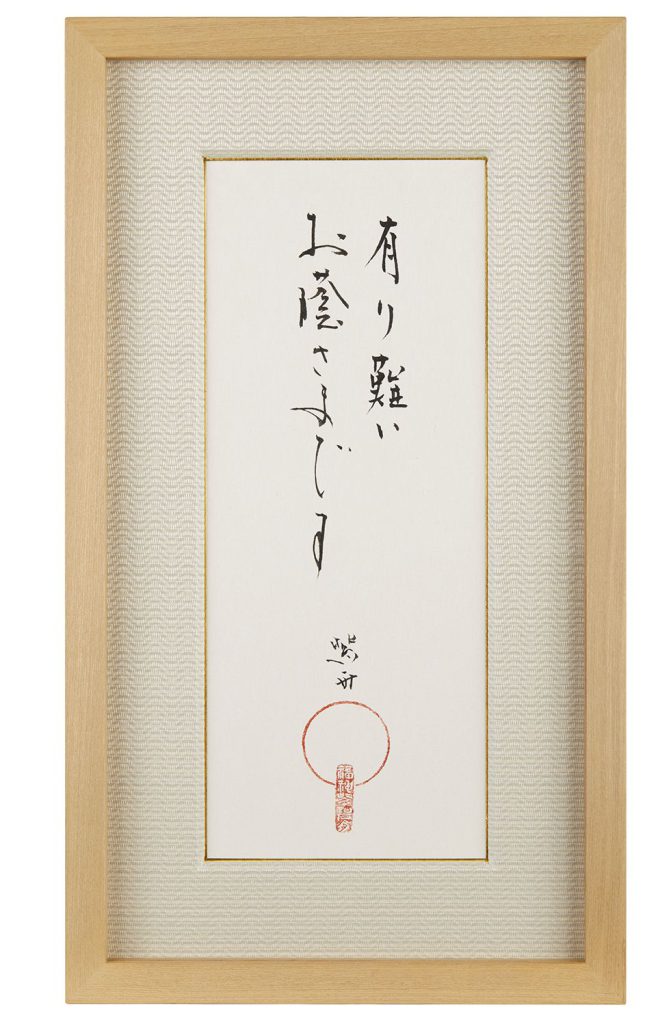 有り難い
お蔭さまです